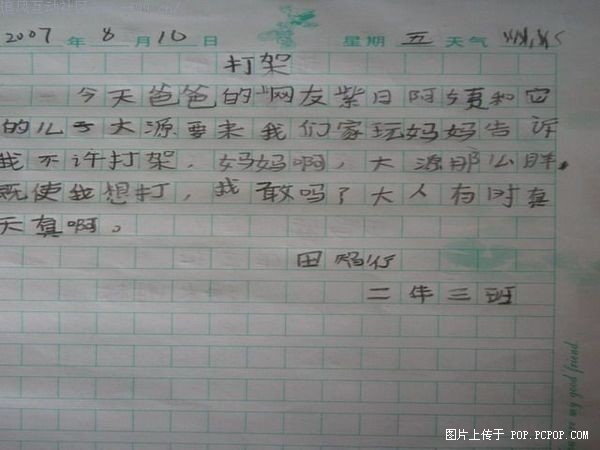 2007 年 8 月 10 日 星期 五 天气
打架
今天爸爸的网友紫日阿姨和它
的儿子大源要来我们家玩妈妈告诉
我不许打架，妈妈啊，大源那么胖，
既使我想打，我敢吗？大人有时真
天真啊。
田
二年三班
my good friend
图片上传于 POP.PCPOP.COM